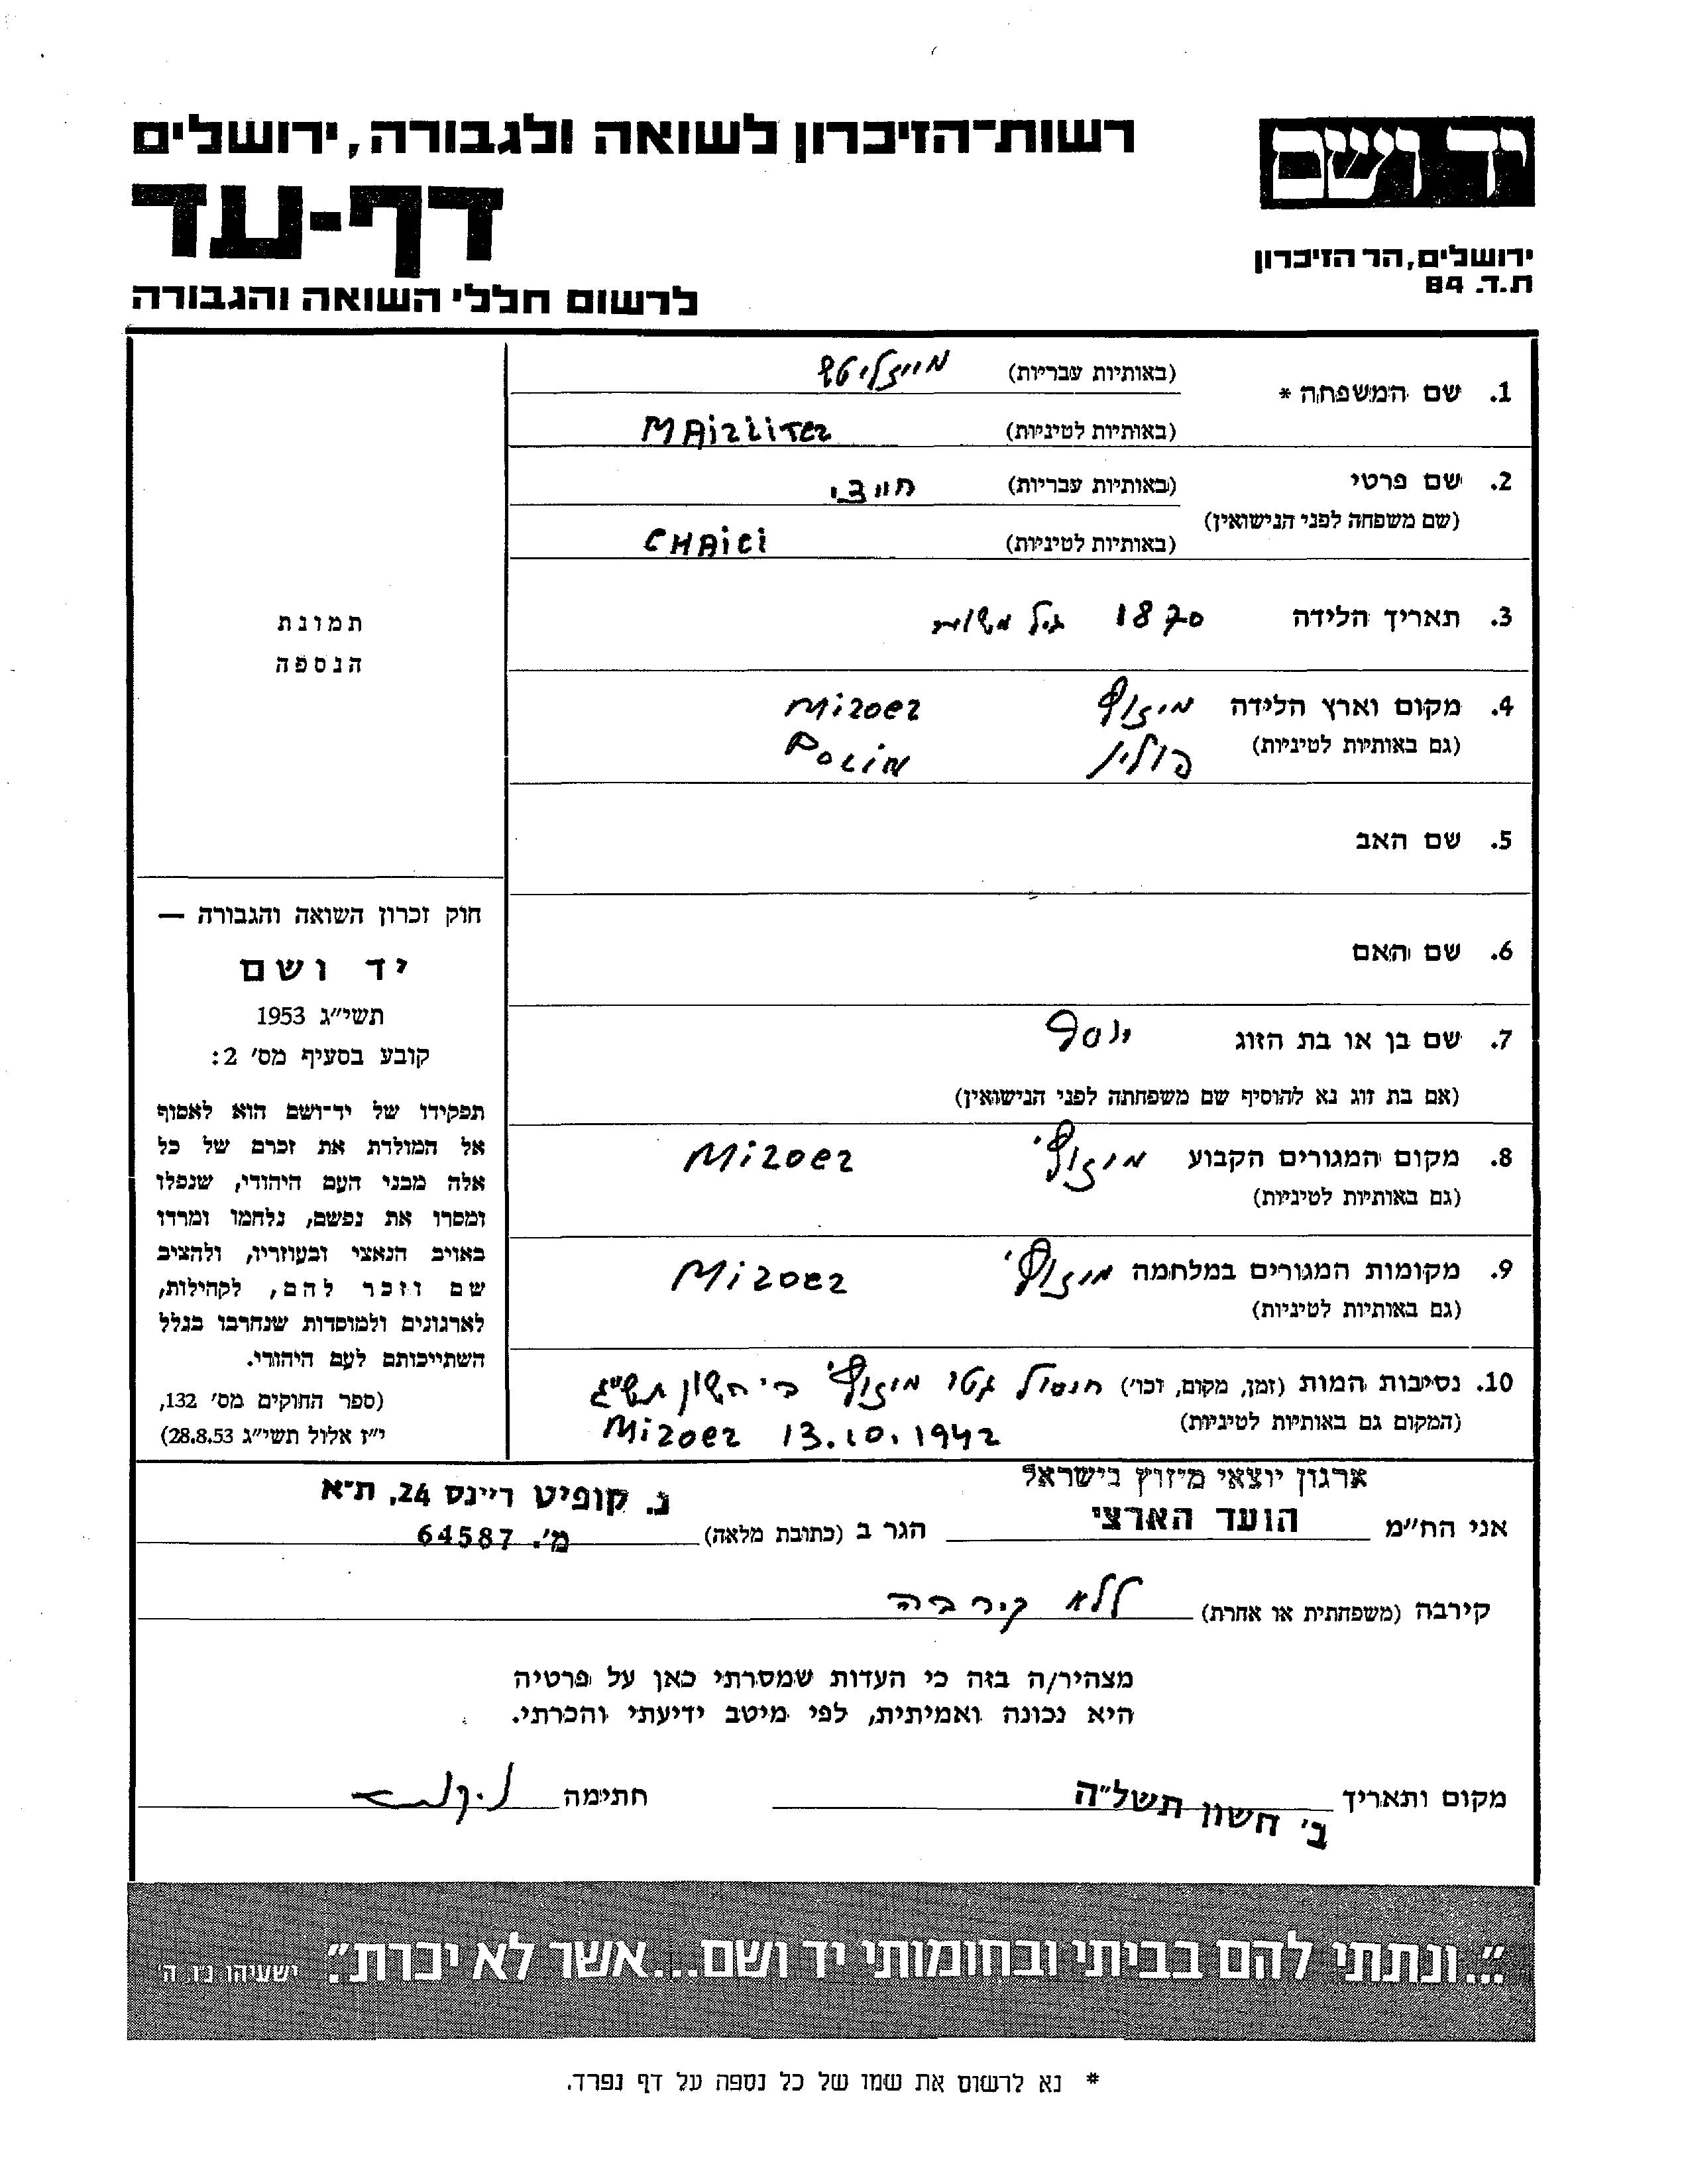 רשות־הזיכרון לשואה ולגבורה, ירושלים
דף-עד
לרשום חללי השואה והגבורה
יד ושם
ירושלים, הר הזיכרון
ת.ד. 84
1. שם המשפחה * (באותיות עבריות) מייזליטץ
(באותיות לטיניות) MAizLiTez
2. שם פרטי (באותיות עבריות) חייצי
(שם משפחה לפני הנישואין)
(באותיות לטיניות) CHAici
3. תאריך הלידה 1870 גיל משוער
4. מקום וארץ הלידה מיזוץ Mizoez
(גם באותיות לטיניות) פולין PoLiN
5. שם האב
6. שם האם
7. שם בן או בת הזוג יוסף
(אם בת זוג נא להוסיף שם משפחתה לפני הנישואין)
8. מקום המגורים הקבוע מיזוץ' Mizoez
(גם באותיות לטיניות)
9. מקומות המגורים במלחמה מיזוץ' Mizoez
(גם באותיות לטיניות)
10. נסיבות המות (זמן, מקום, וכו') חוסול גטו מיזוץ' ב' חשון תש"ג
(המקום גם באותיות לטיניות) Mizoez 13.10.1942
תמונת
הנספה
חוק זכרון השואה והגבורה —
יד ושם
תשי"ג 1953
קובע בסעיף מס' 2:
תפקידו של יד־ושם הוא לאסוף
אל המולדת את זכרם של כל
אלה מבני העם היהודי, שנפלו
ומסרו את נפשם, נלחמו ומרדו
באויב הנאצי ובעוזריו, ולהציב
שם וזכר להם, לקהילות,
לארגונים ולמוסדות שנחרבו בגלל
השתייכותם לעם היהודי.
(ספר החוקים מס' 132,
י"ז אלול תשי"ג 28.8.53)
ארגון יוצאי מיזוץ בישראל
אני הח"מ הועד הארצי הגר ב (כתובת מלאה) נ. קופיט ריינס 24, ת"א
מ'. 64587
קירבה (משפחתית או אחרת) ללא קירבה
מצהיר/ה בזה כי העדות שמסרתי כאן על פרטיה
היא נכונה ואמיתית, לפי מיטב ידיעתי והכרתי.
מקום ותאריך ב' חשון תשל"ה חתימה
"...ונתתי להם בביתי ובחומותי יד ושם...אשר לא יכרת". ישעיהו נ"ו, ה'
* נא לרשום את שמו של כל נספה על דף נפרד.